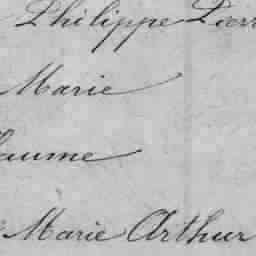 Philippe Pierr
Marie
laume
Marie Arthur